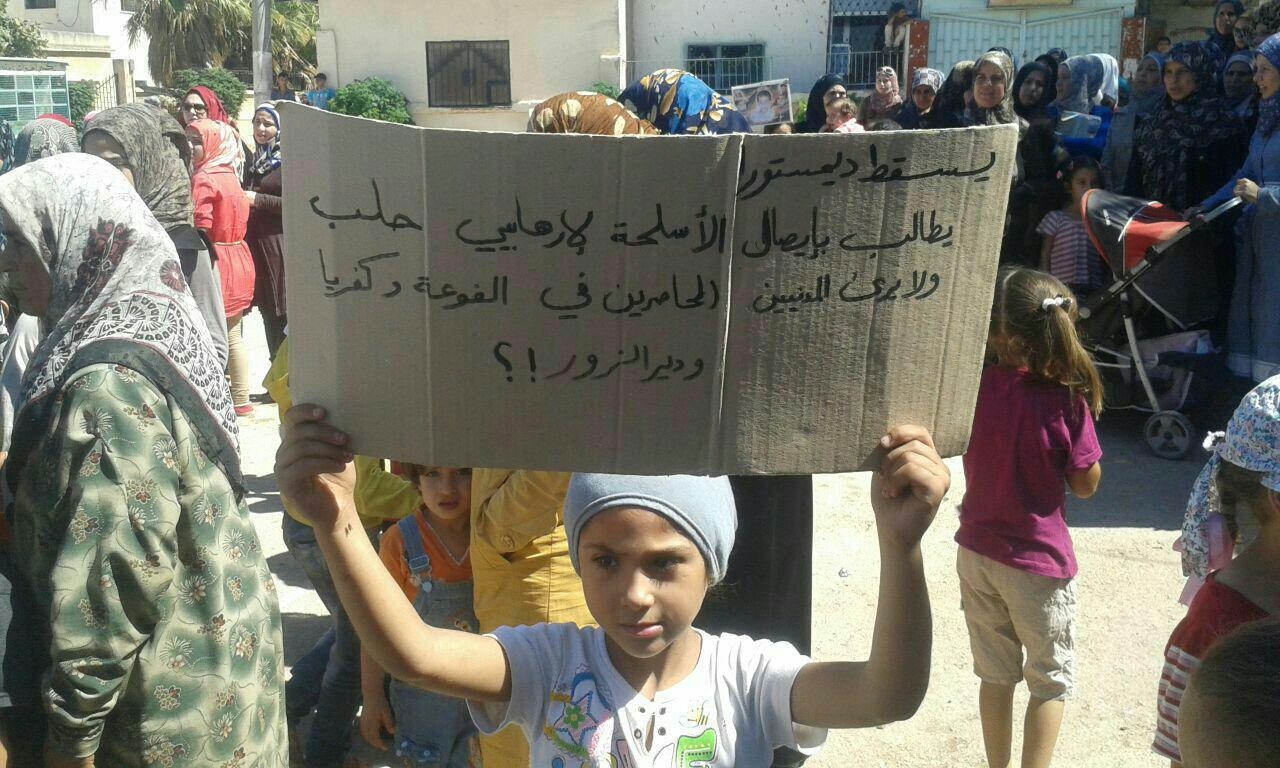 يسقط ديمستورا
يطالب بإيصال الأسلحة لإرهابيي حلب
ولا يرى المدنيين المحاصرين في الفوعة وكفريا
ودير الزور!؟